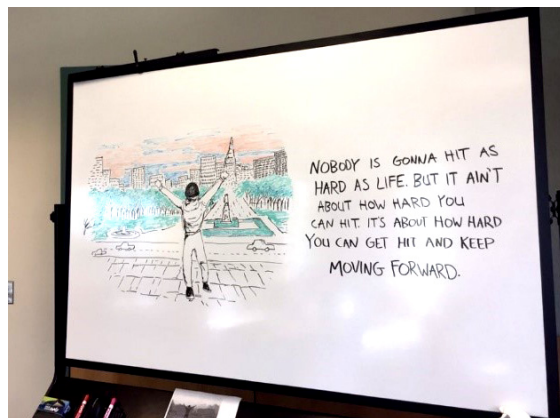 NOBODY IS GONNA HIT AS
HARD AS LIFE. BUT IT AIN'T
ABOUT HOW HARD YOU
CAN HIT. IT'S ABOUT HOW HARD
YOU CAN GET HIT AND KEEP
MOVING FORWARD.